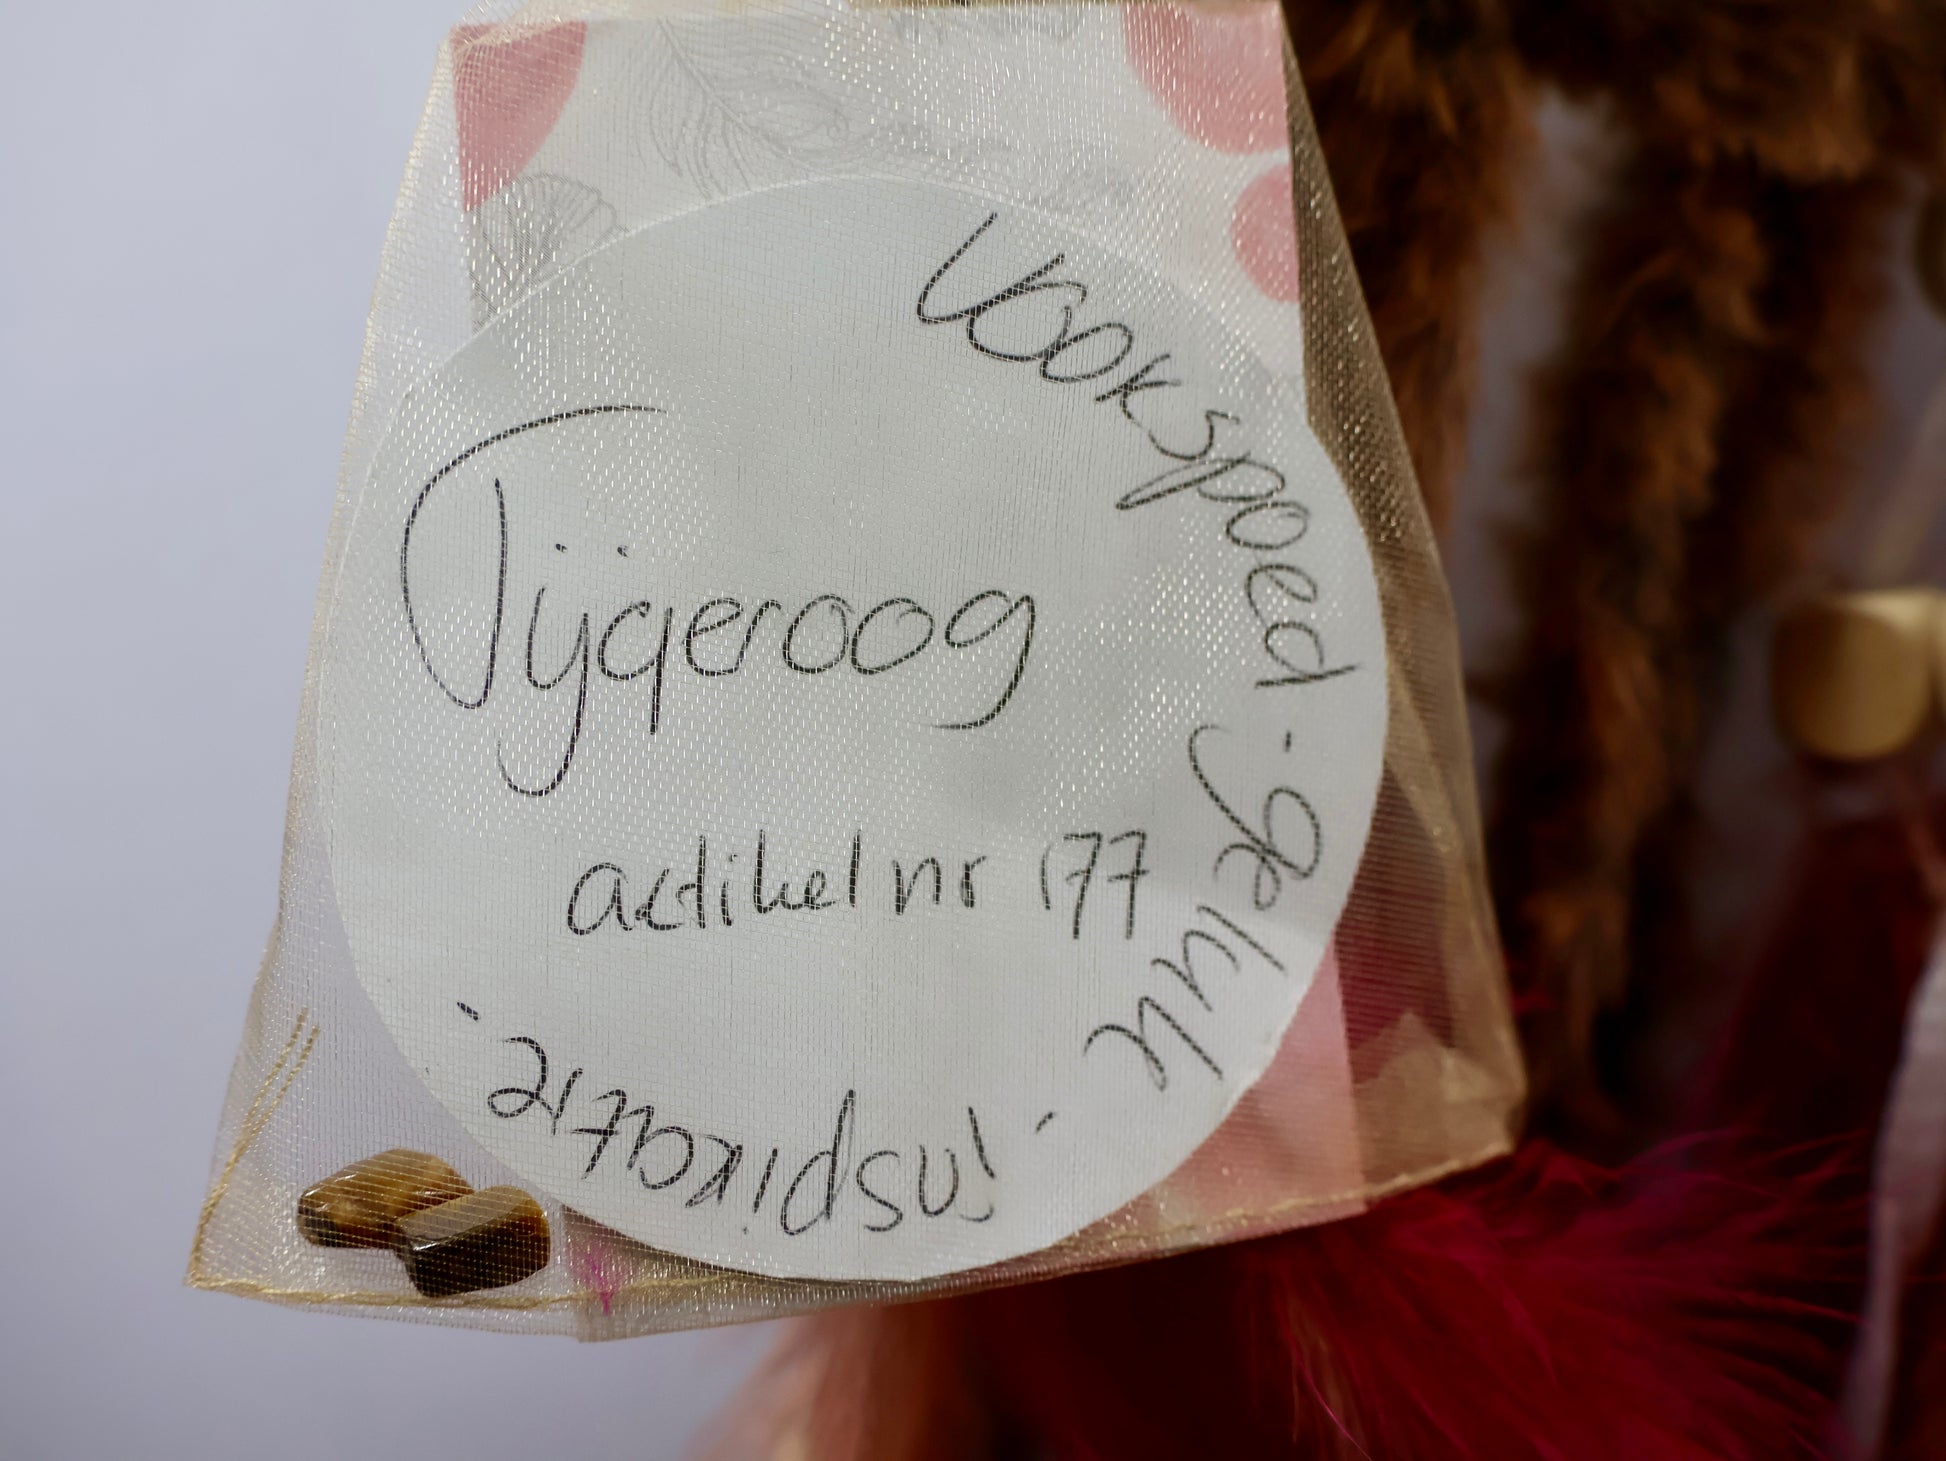 Tijgeroog
artikel nr 177
Voorspoed - geluk - inspiratie.